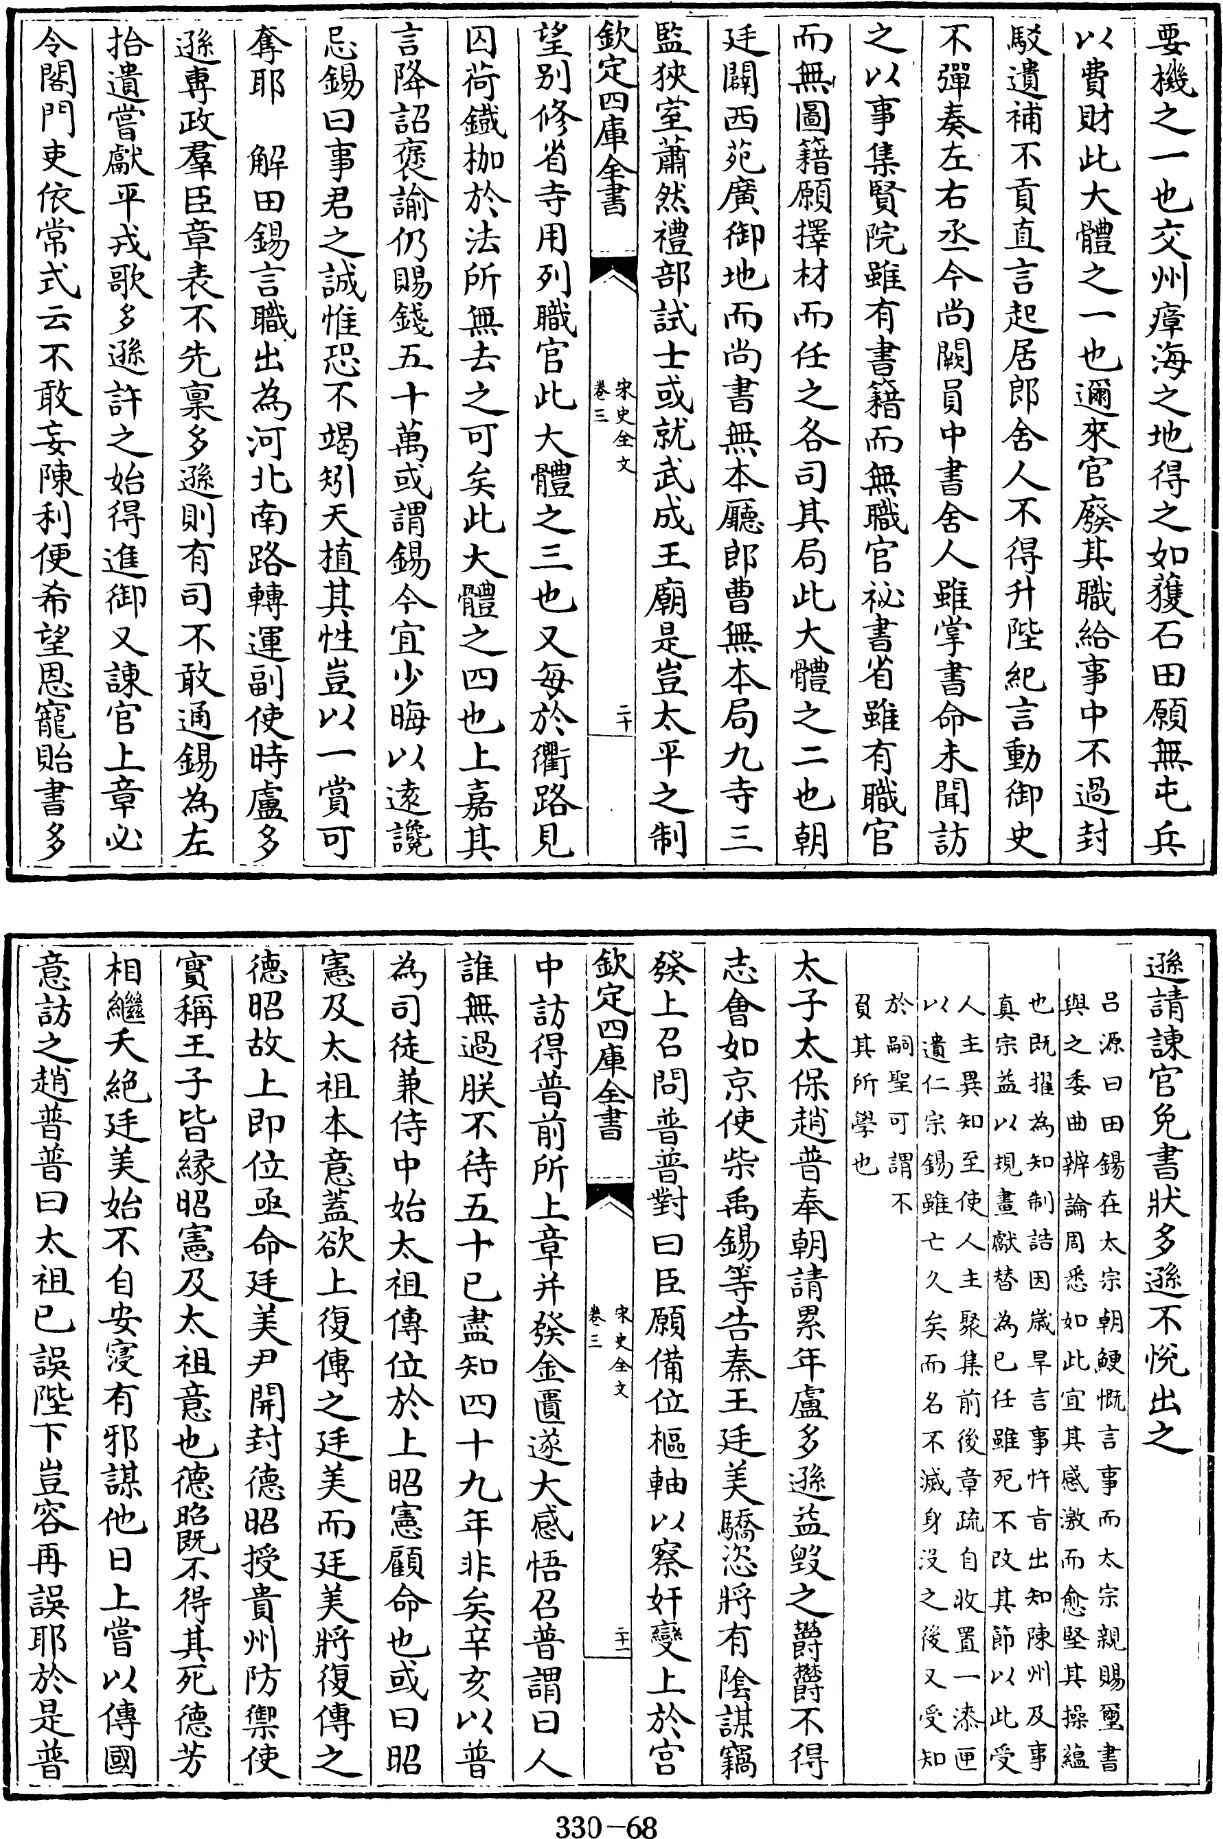 要機之一也交州瘴海之地得之如獲石田願無屯兵
以費財此大體之一也邇來官廢其職給事中不過封
駁遺補不貢直言起居郎舍人不得升陛紀言動御史
不彈奏左右丞今尚闕員中書舍人雖掌書命未聞訪
之以事集賢院雖有書籍而無職官祕書省雖有職官
而無圖籍願擇材而任之各司其局此大體之二也朝
廷闢西苑廣御地而尚書無本廳郎曹無本局九寺三
監狹室蕭然禮部試士或就武成王廟是豈太平之制
欽定四庫全書
宋史全文
卷三
二十
望别修省寺用列職官此大體之三也又每於衢路見
囚荷鐵枷於法所無去之可矣此大體之四也上嘉其
言降詔褒諭仍賜錢五十萬或謂錫今宜少晦以遠讒
忌錫曰事君之誠惟恐不竭矧天植其性豈以一賞可
奪耶　解田錫言職出為河北南路轉運副使時盧多
遜專政羣臣章表不先稟多遜則有司不敢通錫為左
拾遺嘗獻平戎歌多遜許之始得進御又諫官上章必
令閤門吏依常式云不敢妄陳利便希望恩寵貽書多
遜請諫官免書狀多遜不悅出之
吕源曰田錫在太宗朝鯁慨言事而太宗親賜璽書
與之委曲辨論周悉如此宜其感激而愈堅其操蘊
也既擢為知制誥因嵗旱言事忤旨出知陳州及事
真宗益以規畫獻替為己任雖死不改其節以此受
人主異知至使人主聚集前後章疏自收置一漆匣
以遺仁宗錫雖亡久矣而名不滅身没之後又受知
於嗣聖可謂不
負其所學也
太子太保趙普奉朝請累年盧多遜益毀之鬱鬱不得
志會如京使柴禹錫等告秦王廷美驕恣將有陰謀竊
發上召問普普對曰臣願備位樞軸以察奸變上於宫
欽定四庫全書
宋史全文
卷三
二十一
中訪得普前所上章并發金匱遂大感悟召普謂曰人
誰無過朕不待五十已盡知四十九年非矣辛亥以普
為司徒兼侍中始太祖傳位於上昭憲顧命也或曰昭
憲及太祖本意蓋欲上復傳之廷美而廷美將復傳之
德昭故上即位亟命廷美尹開封德昭授貴州防禦使
實稱王子皆縁昭憲及太祖意也德昭既不得其死德芳
相繼夭絶廷美始不自安寖有邪謀他日上嘗以傳國
意訪之趙普普曰太祖已誤陛下豈容再誤耶於是普
330-68